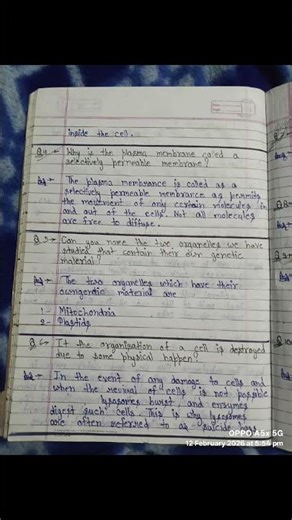 inside the cell.
Q4→ Why is the plasma membrane called a
selectively permeable membrane?
Ans→ The plasma membrance is called as a
selectively permeable membrance as permits
the movement of any certain molecules in
and out of the cells. Not all molecules
are free to diffuse.
Q5→ Can you name the two organelles we have
studied that contain their own genetic
material?
Ans→ The two organelles which have their
own genetic material are
1- Mitochondria
2- Plastids
Q6→ If the organization of a cell is destroyed
due to some physical happen?
Ans→ In the event of any damage to cells and
when the revival of cells is not possible
lysosomes burst, and enzymes
digest such cells. This is why lysosomes
are often referred to as suicide bags
OPPO A5x 5G
12 February 2026 at 5:55 pm